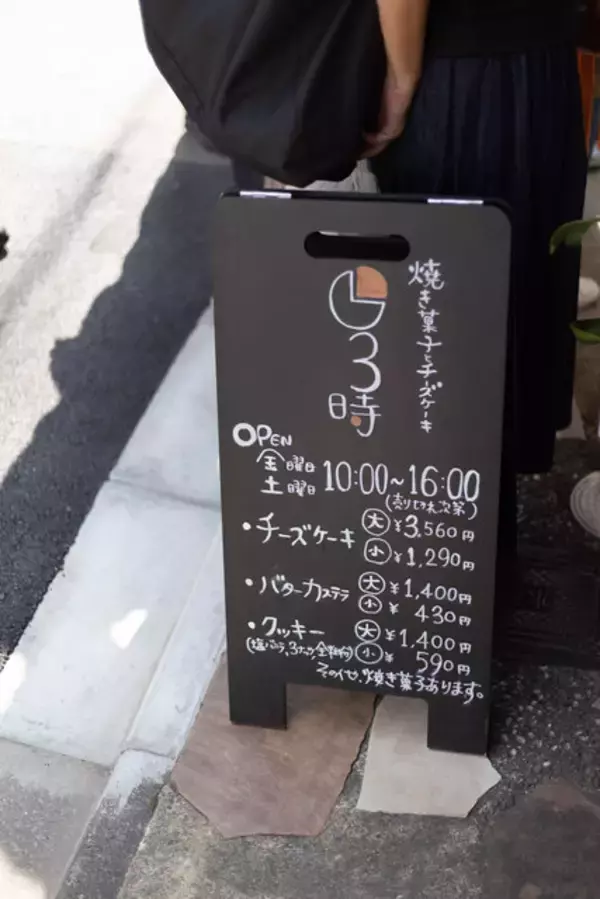 焼き菓子とチーズケーキ
3時
OPEN
金曜日
土曜日
10:00~16:00
(売り切れ次第)
・チーズケーキ 大 ¥3,560円
小 ¥1,290円
・バターカステラ 大 ¥1,400円
小 ¥430円
・クッキー 大 ¥1,400円
小 ¥590円
その他、焼き菓子あります。